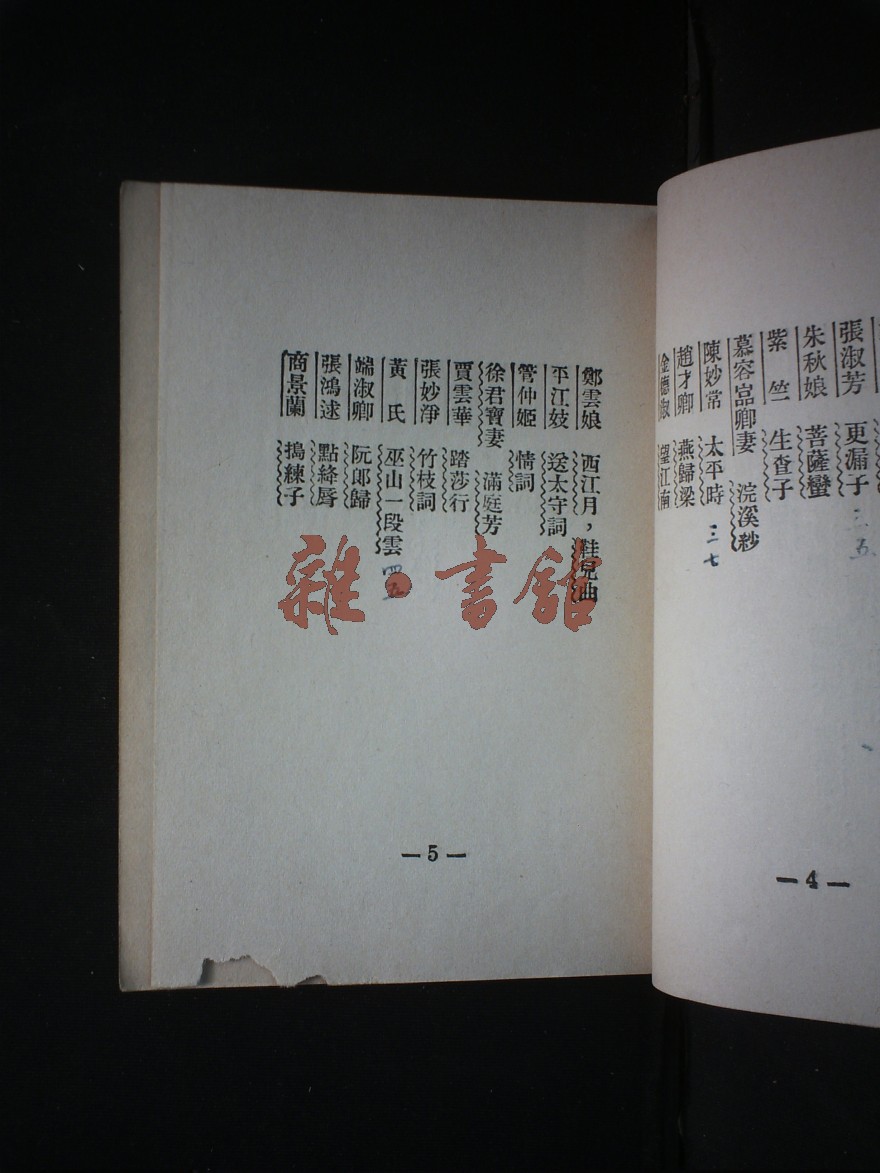 張淑芳 更漏子 三五
朱秋娘 菩薩蠻
紫竺 生查子
慕容嵓卿妻 浣溪紗
陳妙常 太平時 三七
趙才卿 燕歸梁
金德淑 望江南
— 4 —
鄭雲娘 西江月，鞋兒曲
平江妓 送太守詞
管仲姬 情詞
徐君寶妻 滿庭芳
賈雲華 踏莎行
張妙淨 竹枝詞
黃氏 巫山一段雲 四五
端淑卿 阮郎歸
張鴻逑 點絳唇
商景蘭 搗練子
— 5 —
雜·書館